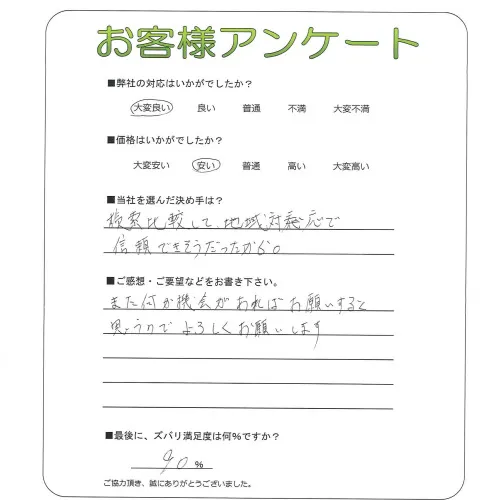 お客様アンケート
■弊社の対応はいかがでしたか？
大変良い 良い 普通 不満 大変不満
■価格はいかがでしたか？
大変安い 安い 普通 高い 大変高い
■当社を選んだ決め手は？
検索比較して、地域対応で
信頼できそうだったから。
■ご感想・ご要望などをお書き下さい。
また何か機会があればお願いすると
思うのでよろしくお願いします
■最後に、ズバリ満足度は何％ですか？
90 ％
ご協力頂き、誠にありがとうございました。